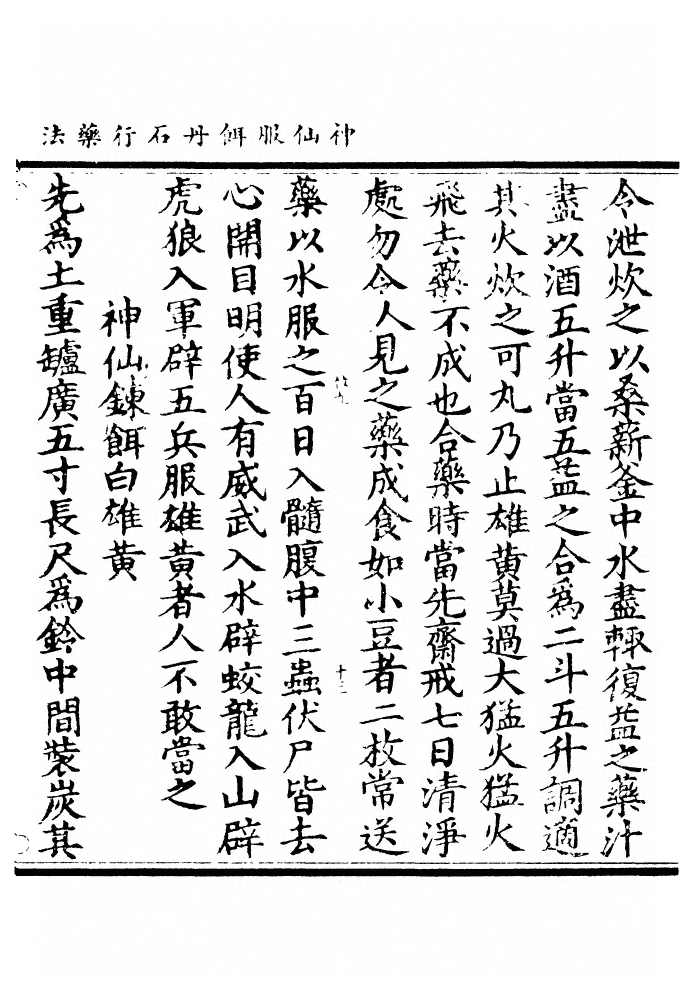 神仙服餌丹石行藥法
令泄炊之以桑薪釜中水盡輙復益之藥汁
盡以酒五升當五益之合為二斗五升調適
其火炊之可丸乃止雄黄莫過大猛火猛火
飛去藥不成也合藥時當先齋戒七日清淨
處勿令人見之藥成食如小豆者二枚常送
十三
藥以水服之百日入髓腹中三蟲伏尸皆去
心開目明使人有威武入水辟蛟龍入山辟
虎狼入軍辟五兵服雄黄者人不敢當之
神仙鍊餌白雄黄
先為土重罏廣五寸長尺為鈴中間裝炭其